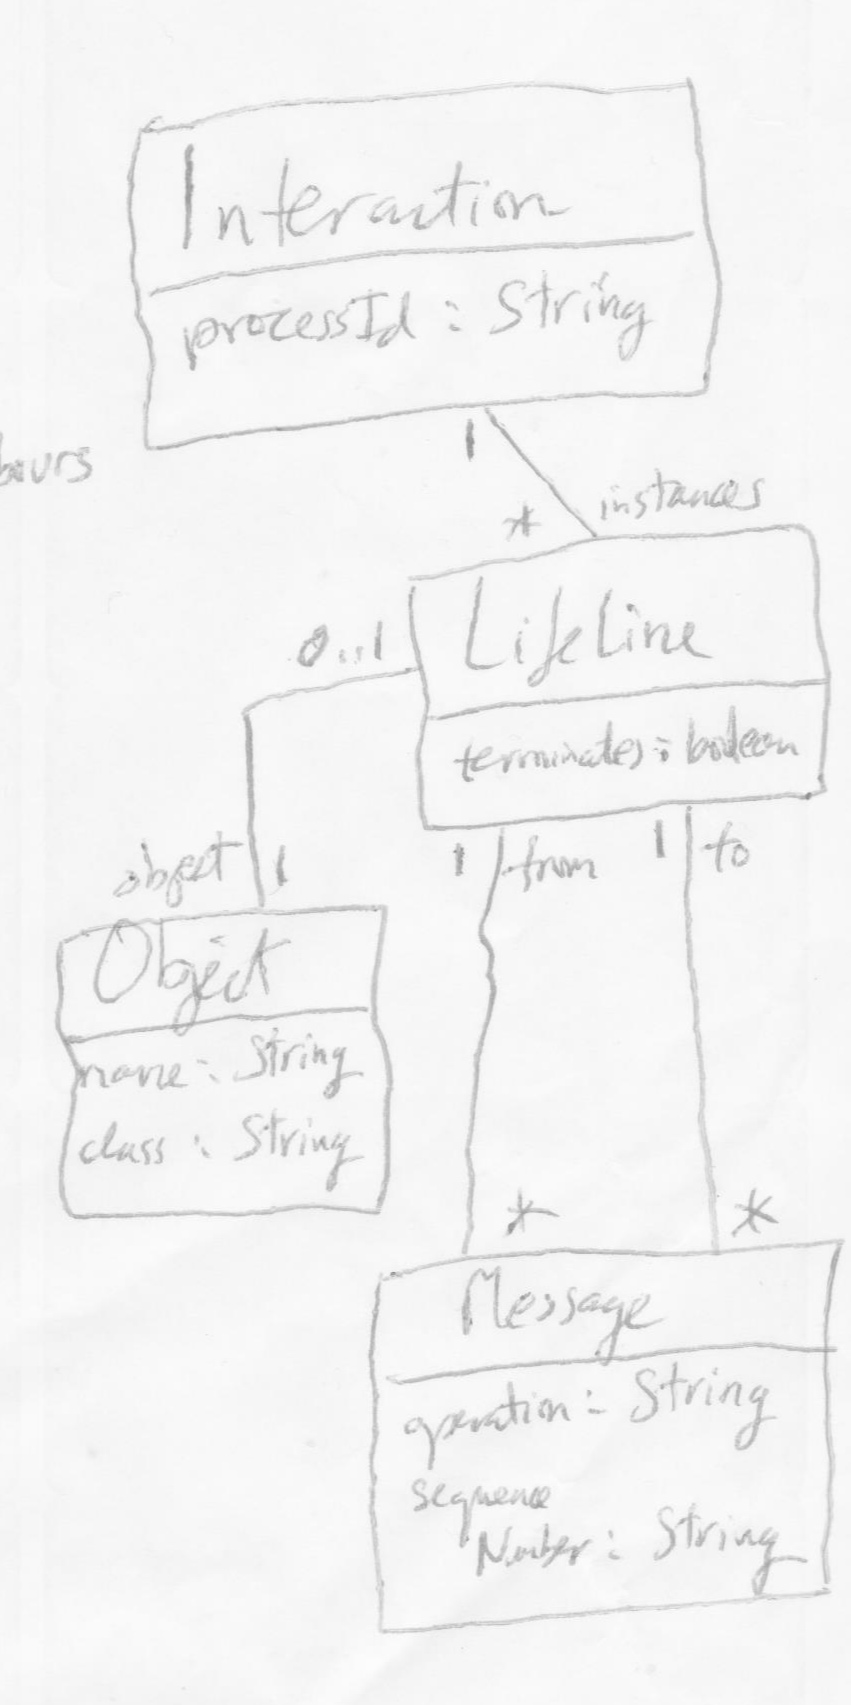 Interaction
processId : String
1
* instances
0..1
LifeLine
terminates : boolean
object 1
1 from 1 to
Object
name : String
class : String
* *
Message
operation : String
sequence
Number : String